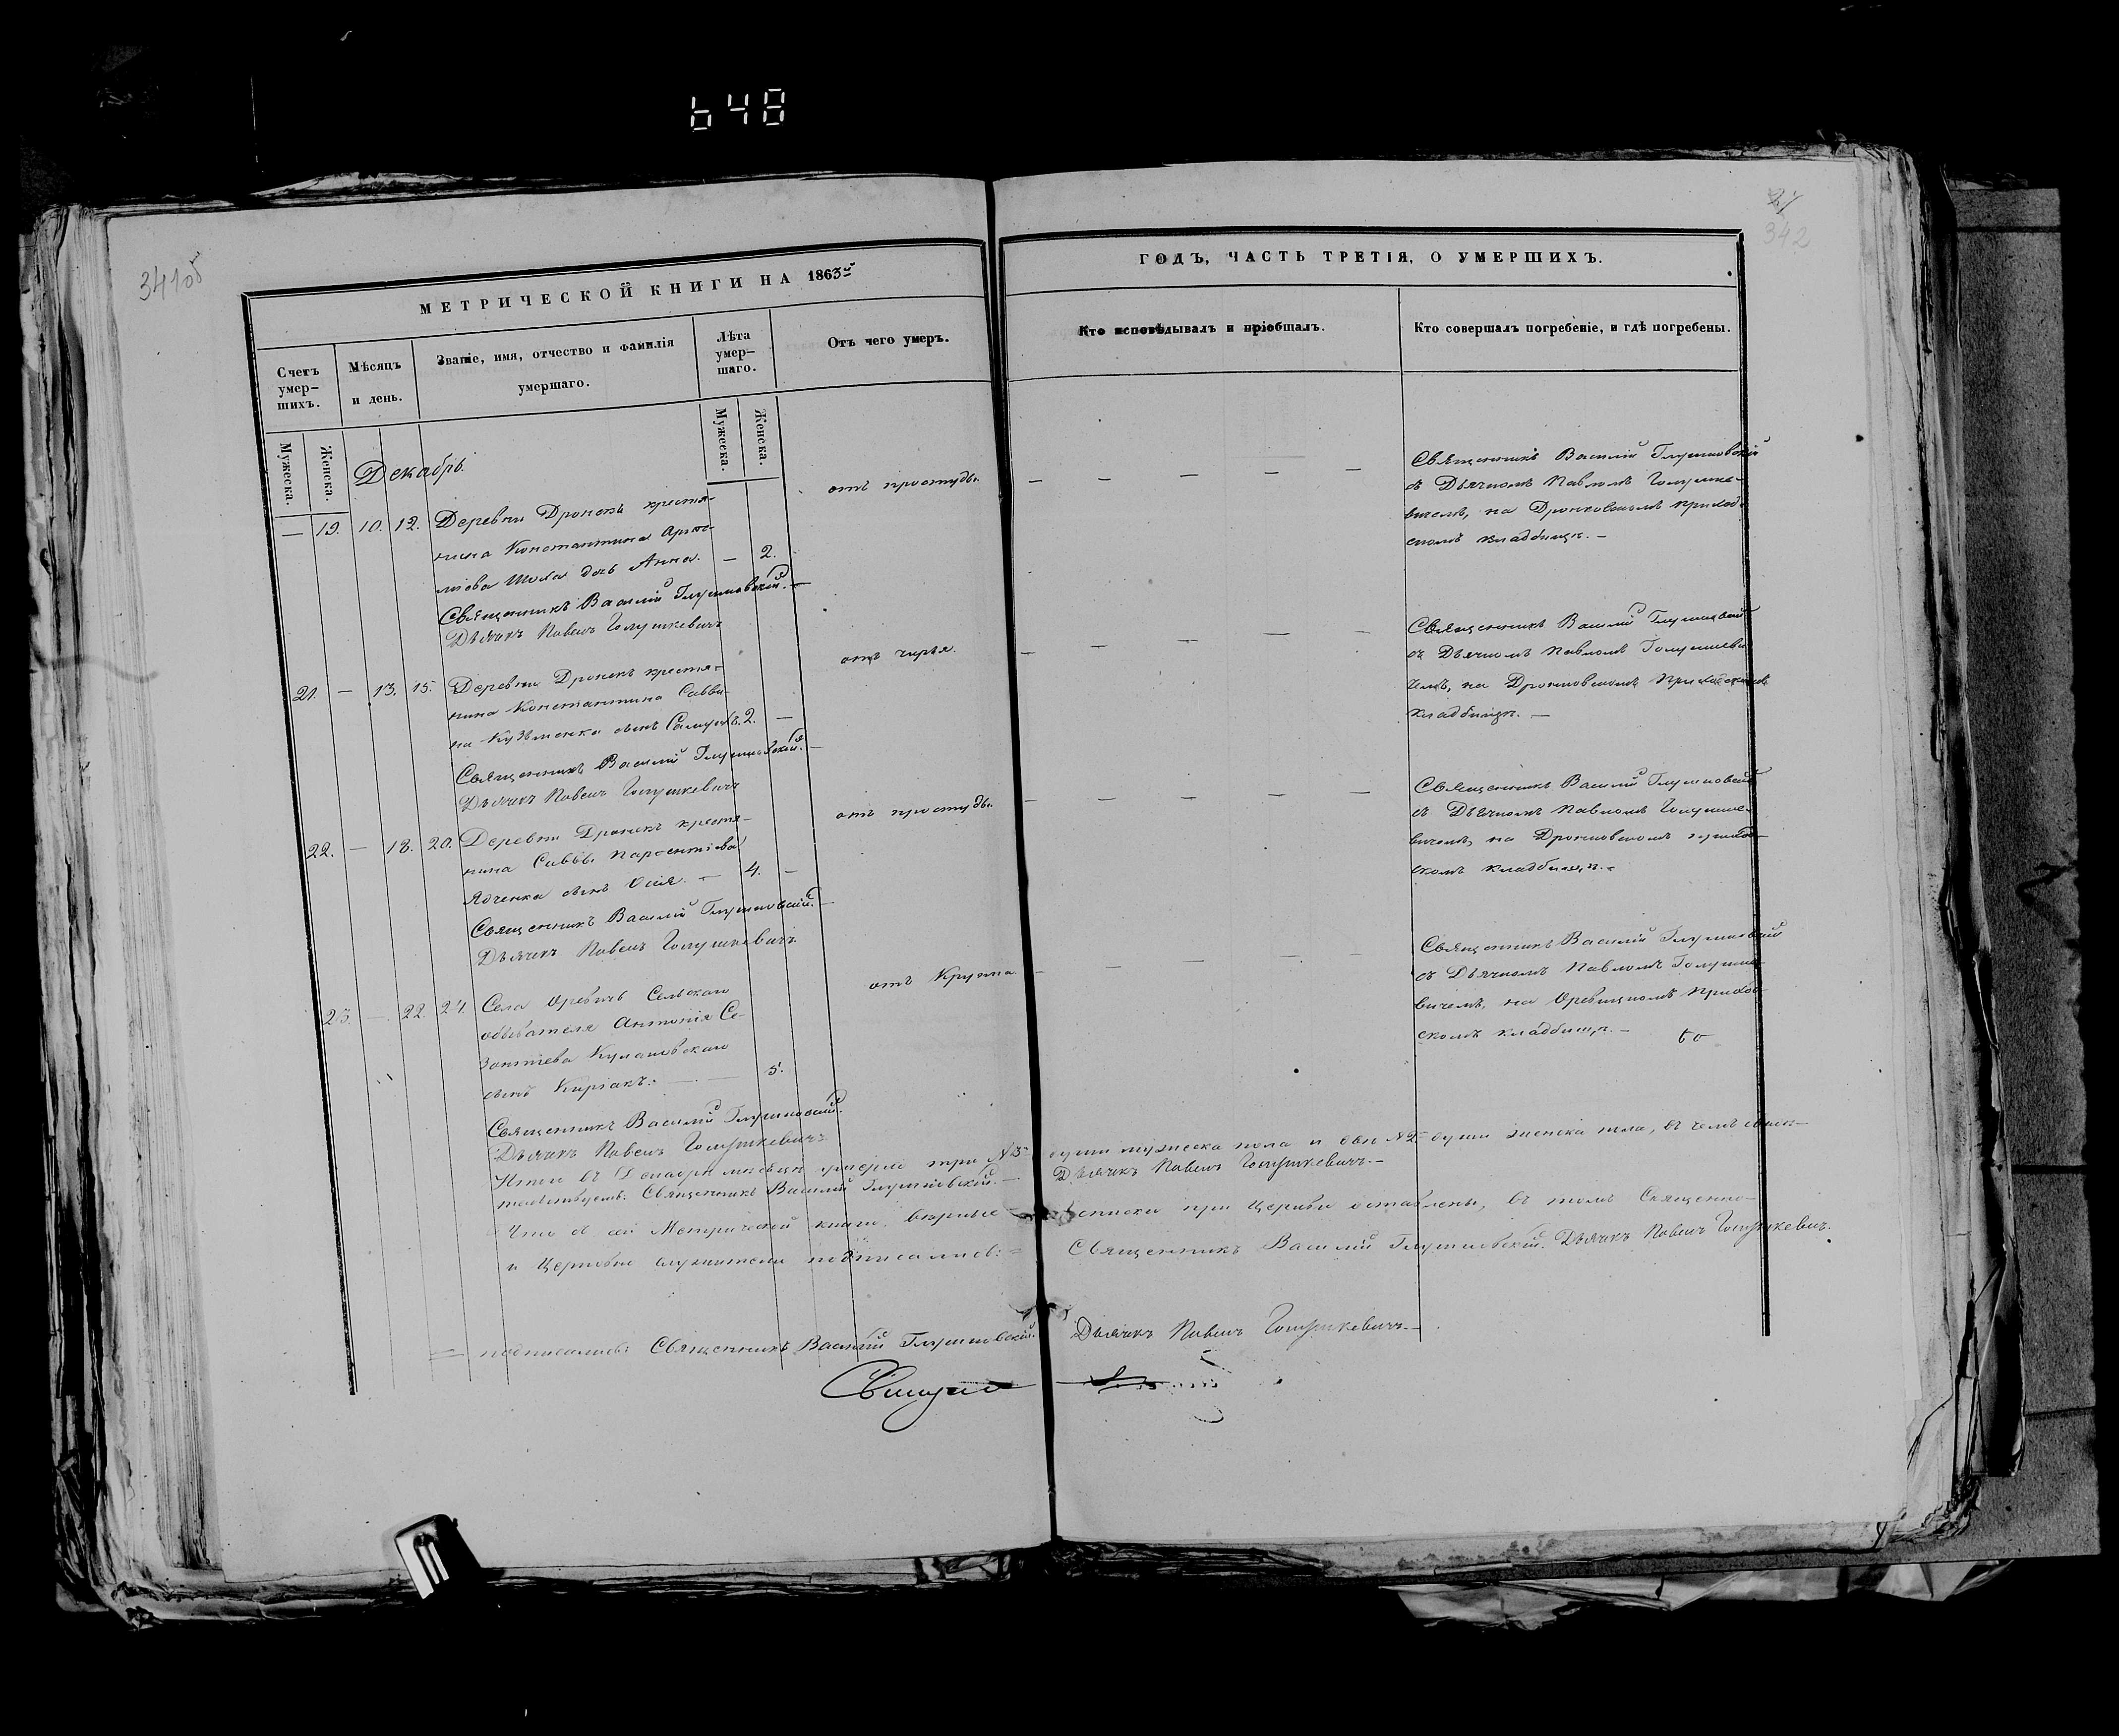 648
341об
342
МЕТРИЧЕСКОЙ КНИГИ НА 1863й
ГОДЪ, ЧАСТЬ ТРЕТІЯ, О УМЕРШИХЪ.
Счетъ умер-
шихъ.
Мѣсяцъ
и день.
Званіе, имя, отчество и фамилія
умершаго.
Лѣта
умер-
шаго.
Отъ чего умеръ.
Кто исповѣдывалъ и пріобщалъ.
Кто совершалъ погребеніе, и гдѣ погребены.
Мужеска.
Женска.
Мужеска.
Женска.
Декабрь.
— 19. 10. 12. Деревни Дронекъ крестья-
нина Константина
дочь Анна. — 2.
отъ простуды.
Священникъ Василій Глушковскій.—
Дьячекъ Павелъ Голушкевичъ
Священникъ Василій Глушковскій
съ Дьячкомъ Павломъ Голушке-
вичемъ, на Дронковскомъ приход-
скомъ кладбищѣ. —
21. — 13. 15. Деревни Дронекъ крестья-
нина Константина Савви-
на Кузьменка сынъ 2. —
отъ чирья.
Священникъ Василій Глушковскій.—
Дьячекъ Павелъ Голушкевичъ
Священникъ Василій Глушковскій
съ Дьячкомъ Павломъ Голушкеви-
чемъ, на Дронковскомъ приходскомъ
кладбищѣ. —
22. — 18. 20. Деревни Дронекъ крестья-
нина Саввы
сынъ — 4. —
отъ простуды.
Священникъ Василій Глушковскій.—
Дьячекъ Павелъ Голушкевичъ.
Священникъ Василій Глушковскій
съ Дьячкомъ Павломъ Голушке-
вичемъ, на Дронковскомъ приход-
скомъ кладбищѣ.—
23. — 22. 24. Села Оревичь Сельскаго
обывателя Антонія Со-
зонтіева
сынъ Киріакъ. — — 5.
отъ Крупа
Священникъ Василій Глушковскій.
Дьячекъ Павелъ Голушкевичъ
Священникъ Василій Глушковскій
съ Дьячкомъ Павломъ Голушке-
вичемъ, на Оревицкомъ приход-
скомъ кладбищѣ. —
Итого въ Декабрѣ мѣсяцѣ умерло три №3 души мужеска пола и двѣ №2 души женска пола, въ чемъ свидѣ-
тельствуемъ: Священникъ Василій Глушковскій.— Дьячекъ Павелъ Голушкевичъ.—
Что съ сей Метрической книги вѣрные списки при Церкви оставлены, въ томъ Священно-
и Церковно служители подписались:= Священникъ Василій Глушковскій. Дьячекъ Павелъ Голушкевичъ.
= подписались: Священникъ Василій Глушковскій. Дьячекъ Павелъ Голушкевичъ.—